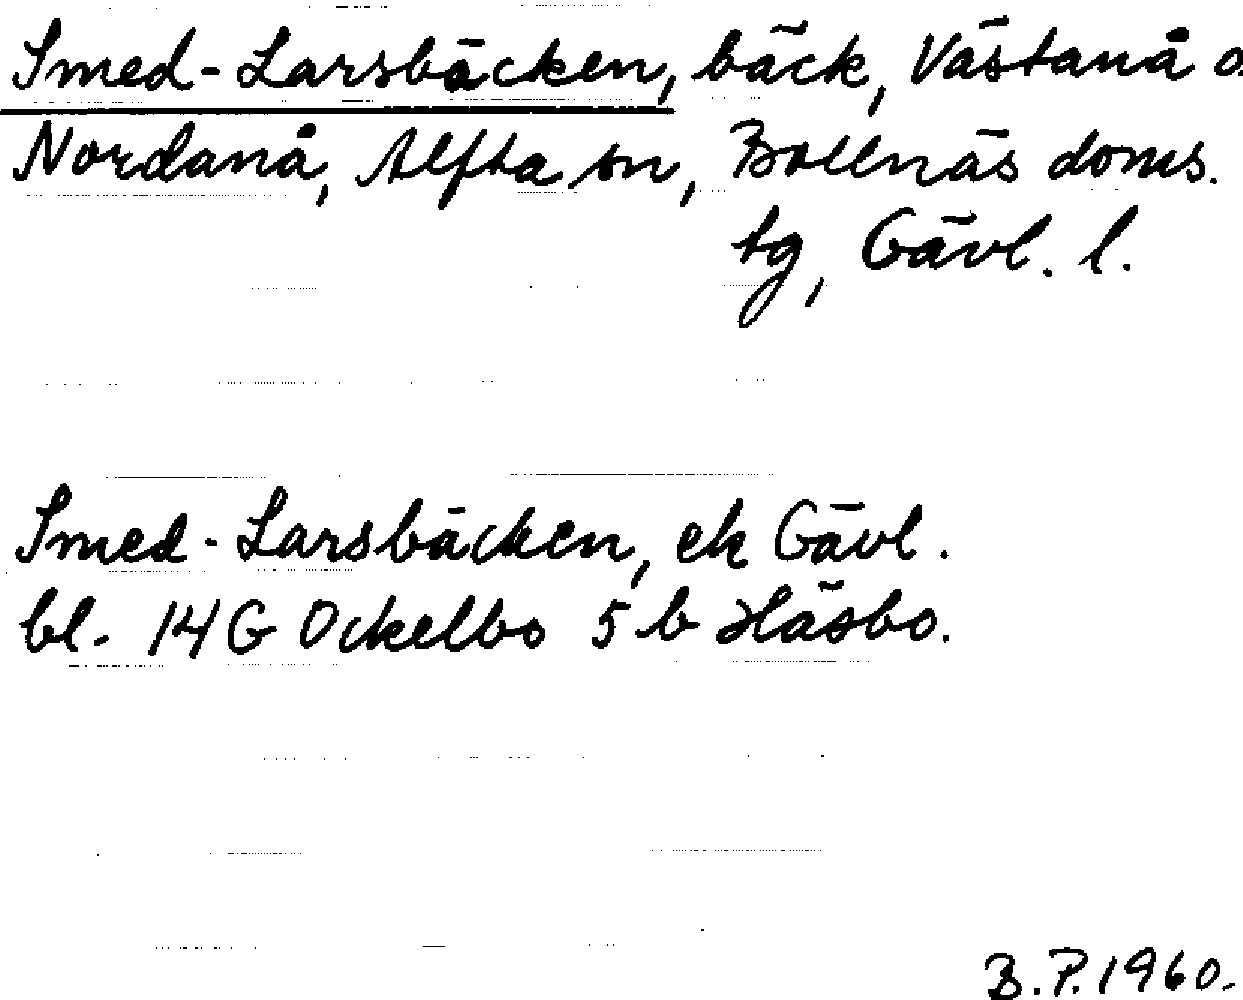 Smed-Larsbäcken, bäck, Västanå o.
Nordanå, Alfta sn, Bollnäs doms.
tg, Gävl. l.
Smed-Larsbäcken, ek Gävl.
bl. 14 G Ockelbo 5 b Häsbo.
B.P. 1960.